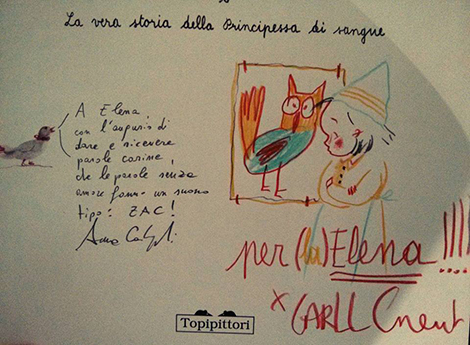 o
La vera storia della Principessa di sangue
A Elena
con l'augurio di
dare e ricevere
parole carine,
che le parole senza
amore fanno un suono
tipo: ZAC!
Anna
per (la) Elena !!!!
x CARLL Cneut
Topipittori